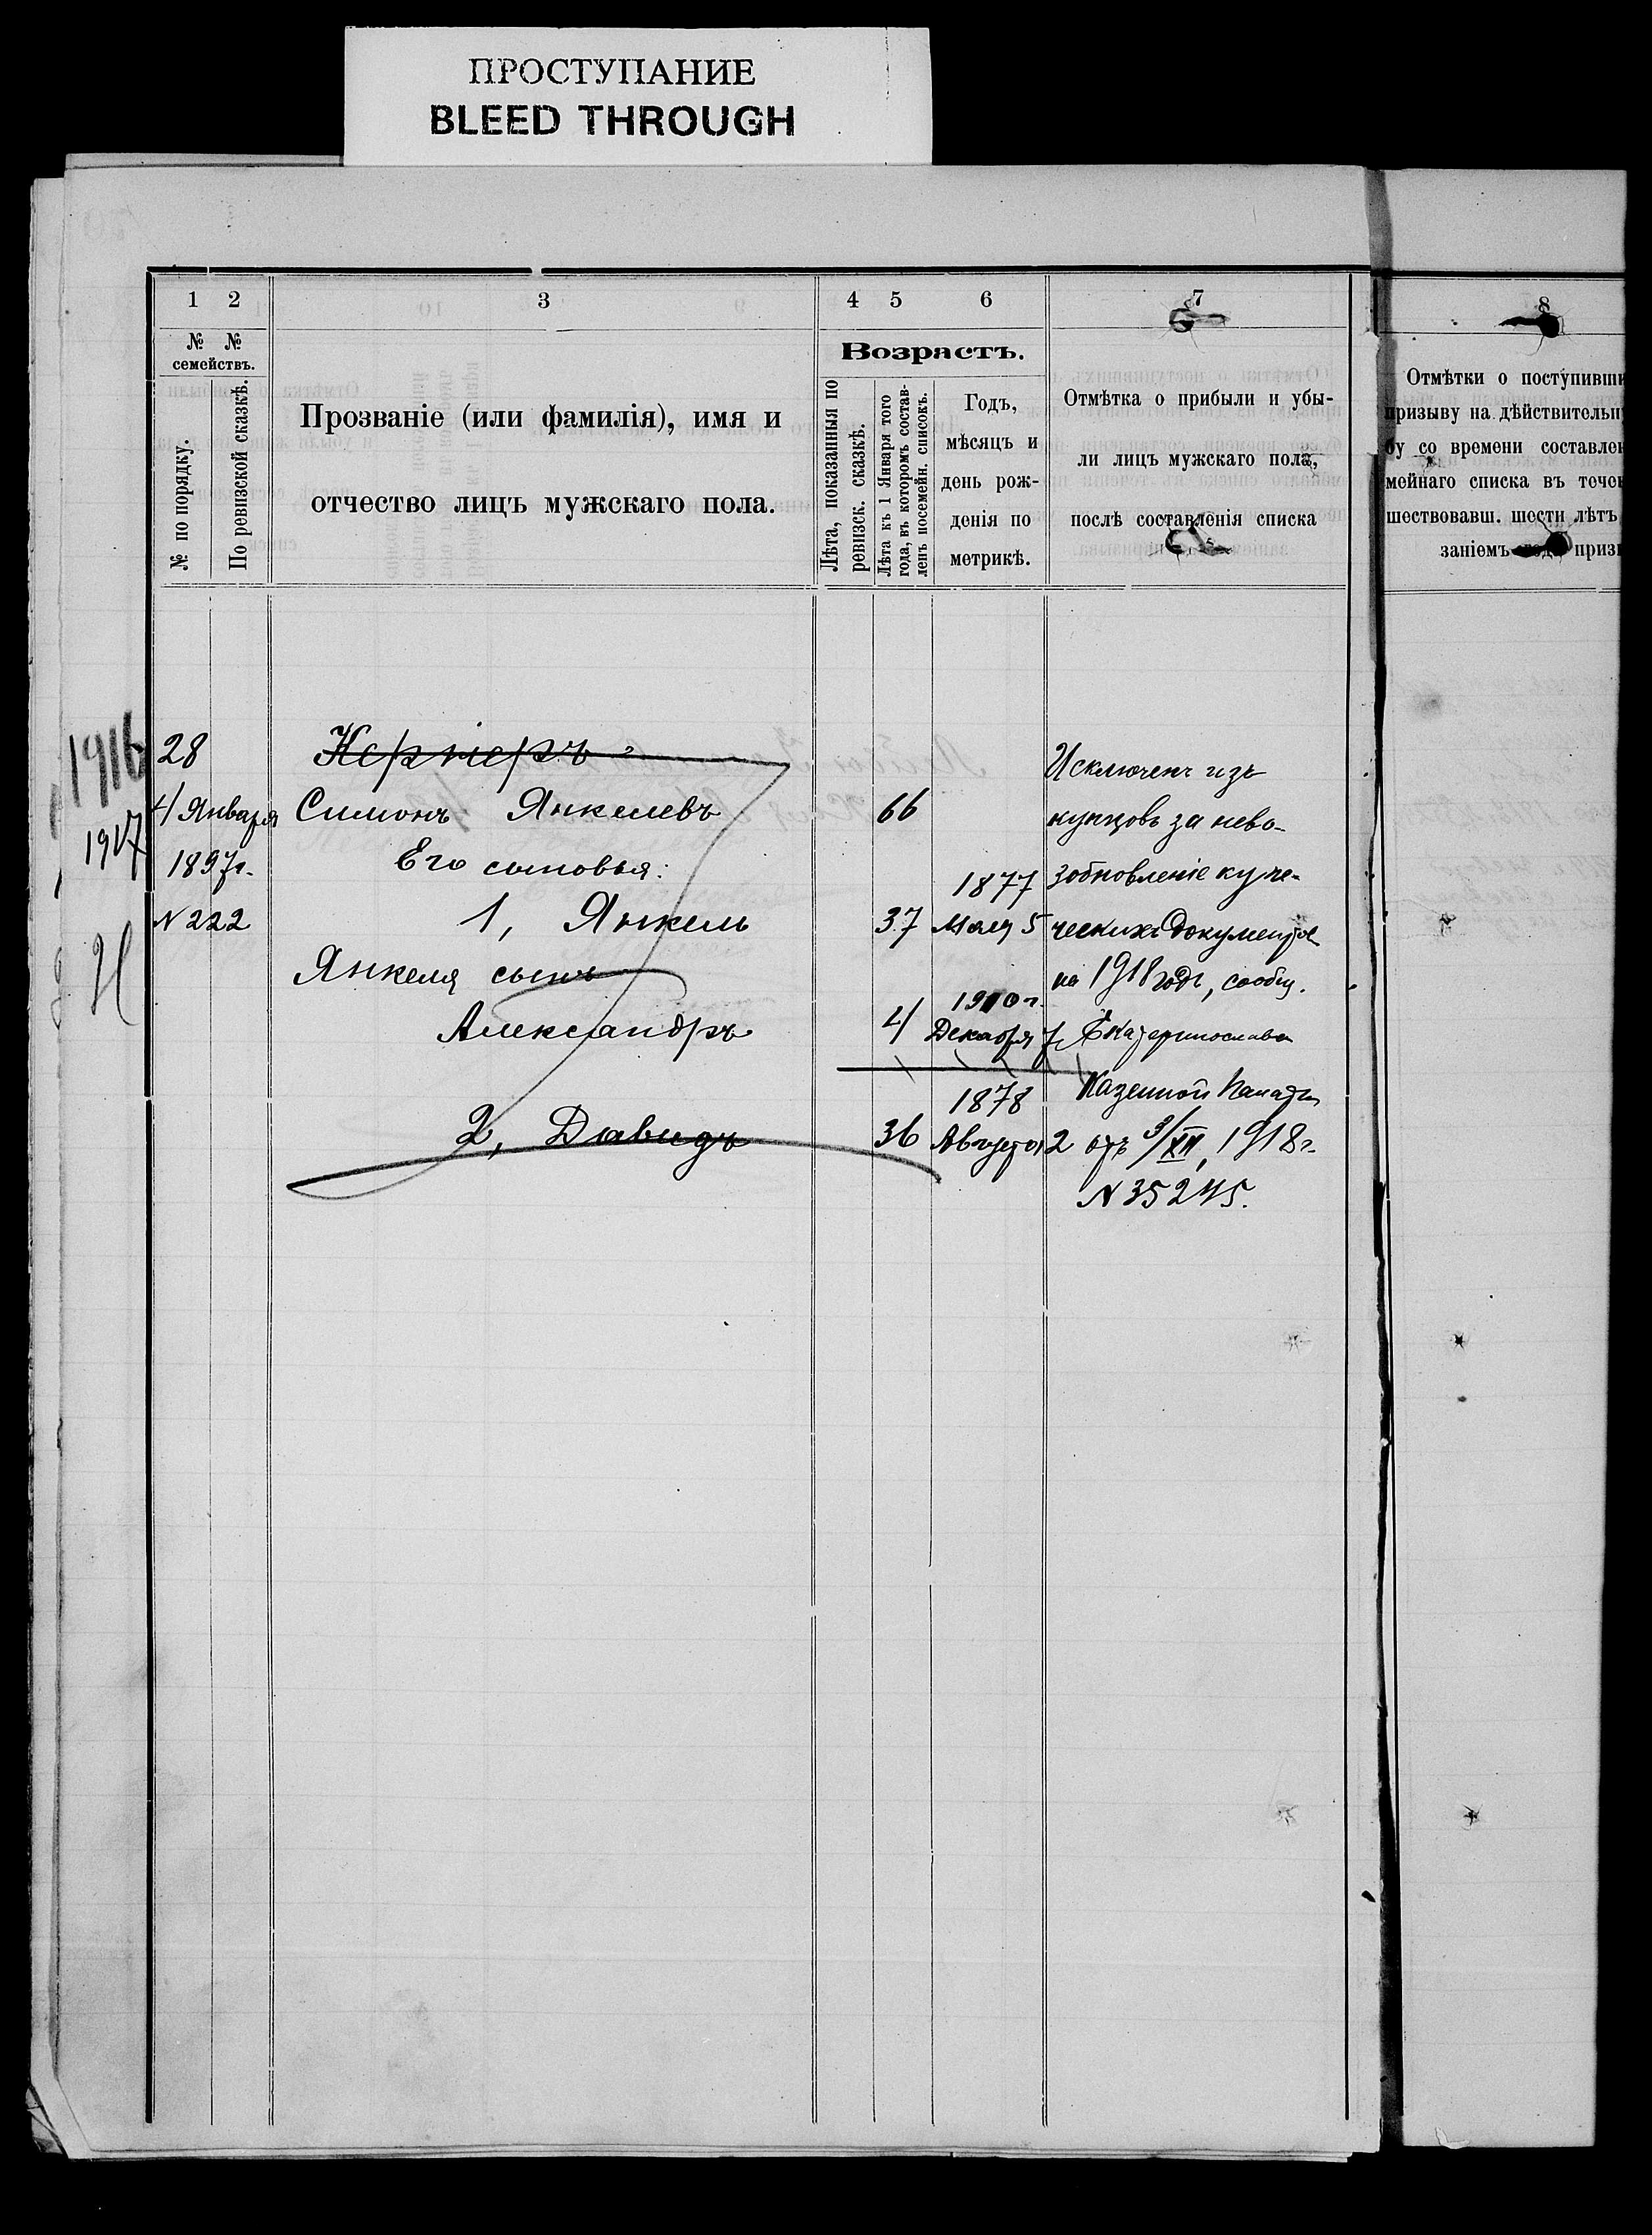 ПРОСТУПАНИЕ
BLEED THROUGH
1 2 3 4 5 6 7 8
№ № семействъ.
№ по порядку.
По ревизской сказкѣ.
Прозваніе (или фамилія), имя и
отчество лицъ мужскаго пола.
Возрастъ.
Лѣта, показанныя по
ревизск. сказкѣ.
Лѣта къ 1 Января того
года, въ которомъ состав-
ленъ посемейн. списокъ.
Годъ,
мѣсяцъ и
день рож-
денія по
метрикѣ.
Отмѣтка о прибыли и убы-
ли лицъ мужскаго пола,
послѣ составленія списка
Отмѣтки о поступивши
призыву на дѣйствительн
бу со времени составлен
мейнаго списка въ течен
шествовавш. шести лѣтъ
заніемъ года призы
1916
1917
28
4 Января
1897г.
N 222
Н
Кернеръ
Симонъ Янкелевъ 66
Его сыновья:
1, Янкель 37 1877 Мая 5
Янкеля сынъ
Александръ 4 1910 г. Декабря 7
2, Давидъ 36 1878 Августа 2
Исключенъ изъ
купцовъ за нево-
зобновленіе купе-
ческихъ документов
на 1918 годъ, сообщ.
Екатеринослав
Казенной Палаты
отъ 3/XII, 1918 г.
N 35245.